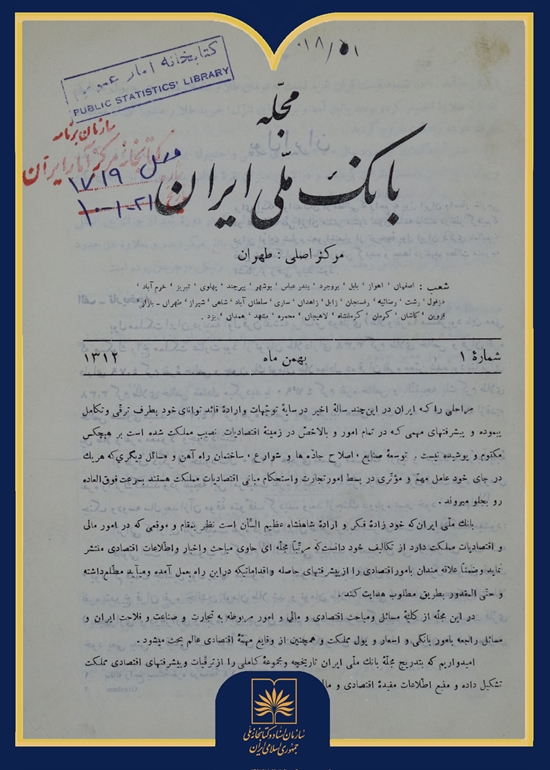 ۰۱۸/۵۱
کتابخانه آمار عمومی
PUBLIC STATISTICS' LIBRARY
سازمان برنامه
کتابخانهٔ مرکز آمار ایران
۱۷۱۹
۱۰-۱-۲۱
مجلّه
بانک ملّی ایران
مرکز اصلی : طهران
شعب : اصفهان | اهواز | بابل | بروجرد | بندر عباس | بوشهر | بیرجند | پهلوی | تبریز | خرم آباد |
دزفول | رشت | رضائیه | رفسنجان | زابل | زاهدان | ساری | سلطان آباد | شاهی | شیراز | طهران ـ بازار |
قزوین | کاشان | کرمان | کرمانشاه | لاهیجان | محمره | مشهد | همدان | یزد .
شمارهٔ ۱
بهمن ماه
۱۳۱۲
مراحلی را که ایران در این چند سالهٔ اخیر در سایهٔ توجّهات و ارادهٔ قائد توانای خود بطرف ترقّی و تکامل
پیموده و پیشرفتهای مهمی که در تمام امور و بالاخصّ در زمینهٔ اقتصادیات نصیب مملکت شده است بر هیچکس
مکتوم و پوشیده نیست . توسعهٔ صنایع ، اصلاح جادّه ها و شوارع ، ساختمان راه آهن و مسائل دیگری که هر یک
در جای خود عامل مهمّ و مؤثری در بسط امور تجارت و استحکام مبانی اقتصادیات مملکت هستند بسرعت فوق العاده
رو بجلو میروند .
بانک ملّی ایران که خود زادهٔ فکر و ارادهٔ شاهنشاه عظیم الشّأن است نظر بمقام و موقعی که در امور مالی
و اقتصادیات مملکت دارد از تکالیف خود دانست که مرتّباً مجلّه ای حاوی مباحث و اخبار و اطلاعات اقتصادی منتشر
نماید و ضمناً علاقه مندان بامور اقتصادی را از پیشرفتهای حاصله و اقداماتیکه در این راه بعمل آمده و میآید مطلع داشته
و حتّی المقدور بطریق مطلوب هدایت کند .
در این مجله از کلیّهٔ مسائل و مباحث اقتصادی و مالی و امور مربوطه به تجارت و صناعت و فلاحت ایران و
مسائل راجعه بامور بانکی و اسعار و پول مملکت و همچنین از وقایع مهمّهٔ اقتصادی عالم بحث میشود .
امیدواریم که بتدریج مجلهٔ بانک ملّی ایران تاریخچه و مجموعهٔ کاملی را از ترقیات و پیشرفتهای اقتصادی مملکت
تشکیل داده و منبع اطلاعات مفیدهٔ اقتصادی و
سازمان اسناد و کتابخانه ملی
جمهوری اسلامی ایران